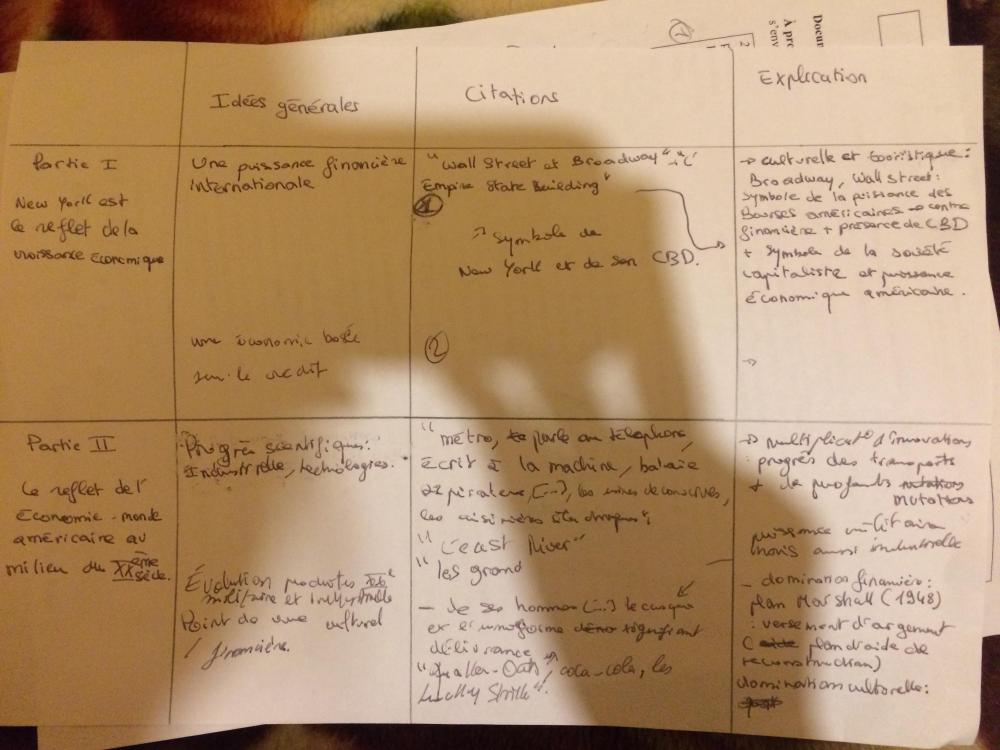 Docum
À pre
s'env
2
Idées générales
Citations
Explication
Partie I
New York est
le reflet de la
croissance économique
Une puissance financière
internationale
"Wall Street et Broadway" "L'
Empire State Building"
①
→ symbole de
New York et de son CBD.
→ culturelle et touristique :
Broadway, Wall Street :
symbole de la puissance des
Bourses américaines → centre
financière + présence de CBD
+ symbole de la société
capitaliste et puissance
économique américaine.
une économie basée
sur le crédit
②
→
Partie II
Le reflet de l'
économie-monde
américaine au
milieu du XXème
siècle.
Progrès scientifiques :
Industrielle, technologies.
Évolution productes
militaire et industrielle
Point de vue culturel
/ financière.
" métro, parle au téléphone,
écrit à la machine, balaie
[...], les usines de conserves,
les
" L'east River"
" les grand
- de ses hommes (...) le casque
et l'uniforme signifiant
délivrance
"Quaker-Oats", coca-cola, les
Lucky Strike".
→ multiplicat° d'innovations
: progrès des transports
+ de profonds
mutations
puissance militaire
mais aussi industrielle
- domination financière :
plan Marshall (1948)
: versement d'argement
( plan d'aide de
reconstruction)
domination culturelle :